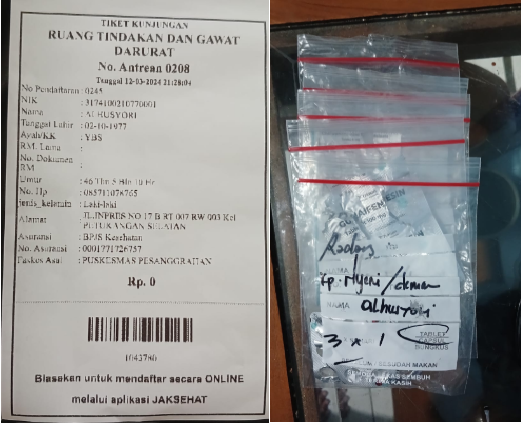 TIKET KUNJUNGAN
RUANG TINDAKAN DAN GAWAT
DARURAT
No. Antrean 0208
Tanggal 12-03-2024 21:28:04
No Pendaftaran : 0245
NIK : 3174100210770001
Nama : ALHUSYORI
Tanggal Lahir : 02-10-1977
Ayah/KK : YBS
RM. Lama :
No. Dokumen :
RM
Umur : 46 Thn 5 Bln 10 Hr
No. Hp : 085711078765
Jenis_kelamin : Laki-laki
Alamat : JL.INPRES NO 17 B RT 007 RW 003 Kel
PETUKANGAN SELATAN
Asuransi : BPJS Kesehatan
No. Asuransi : 0001771726757
Faskes Asal : PUSKESMAS PESANGGRAHAN
Rp. 0
1043780
Biasakan untuk mendaftar secara ONLINE
melalui aplikasi JAKSEHAT
GUAIFENESIN
Radang
NAMA
/
NAMA
3 x 1
TABLET
KAPSUL
BUNGKUS
SESUDAH MAKAN
SEMOGA LEKAS SEMBUH
TERIMA KASIH